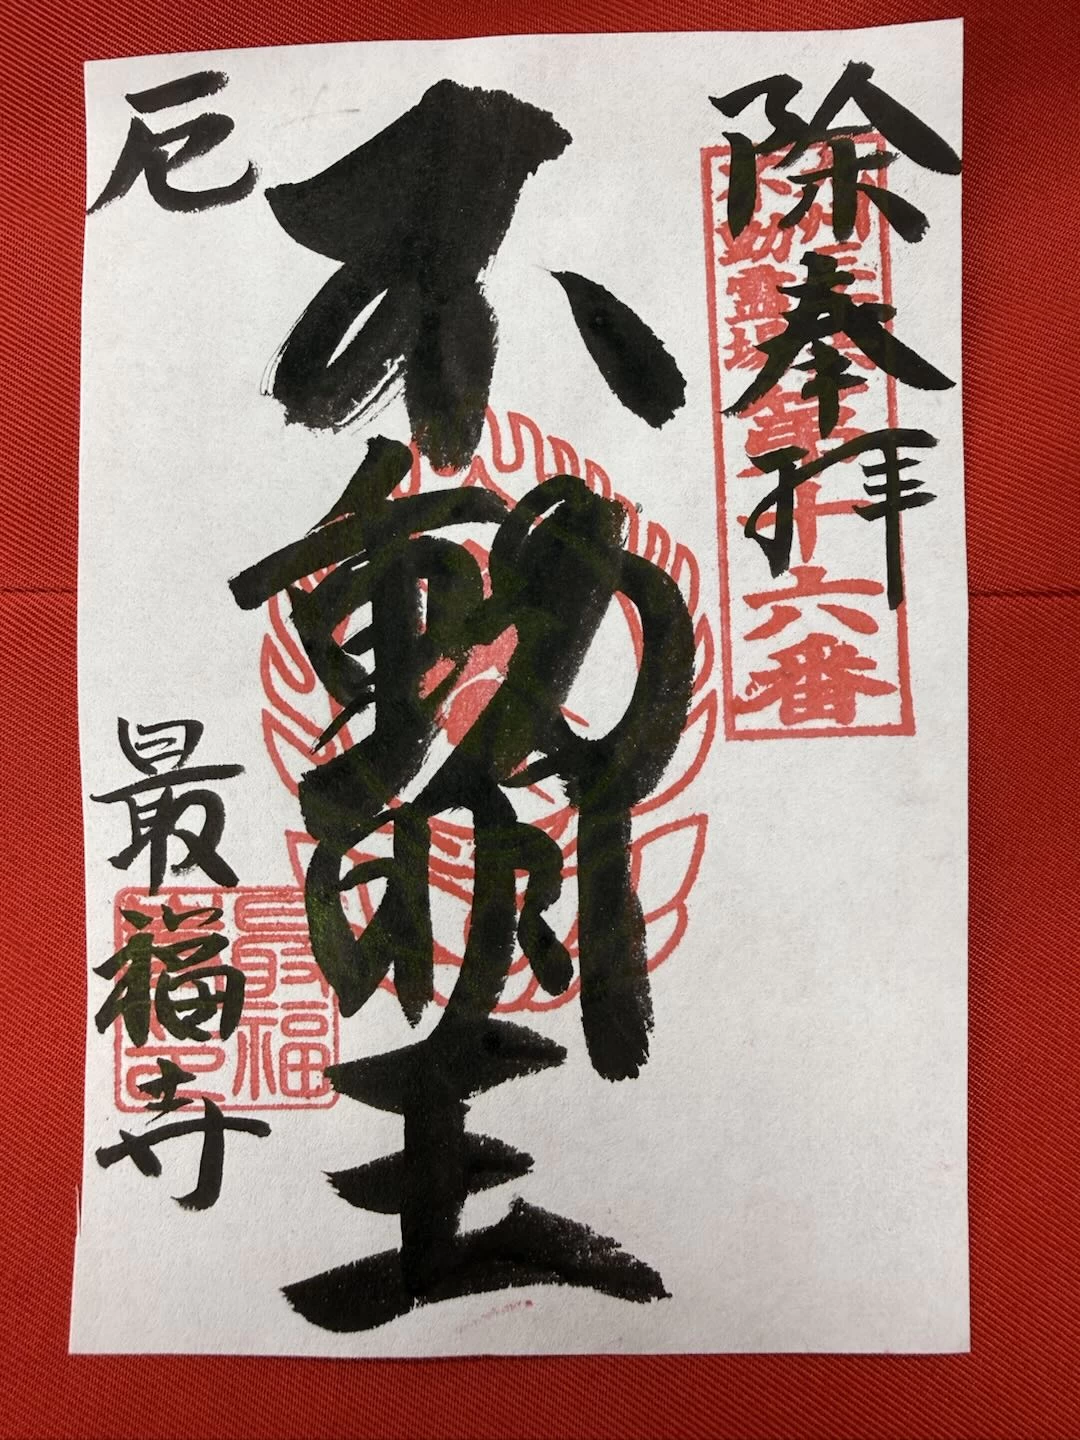 除
奉拝
不動霊場
第十六番
不動明王
厄
最福寺
最福